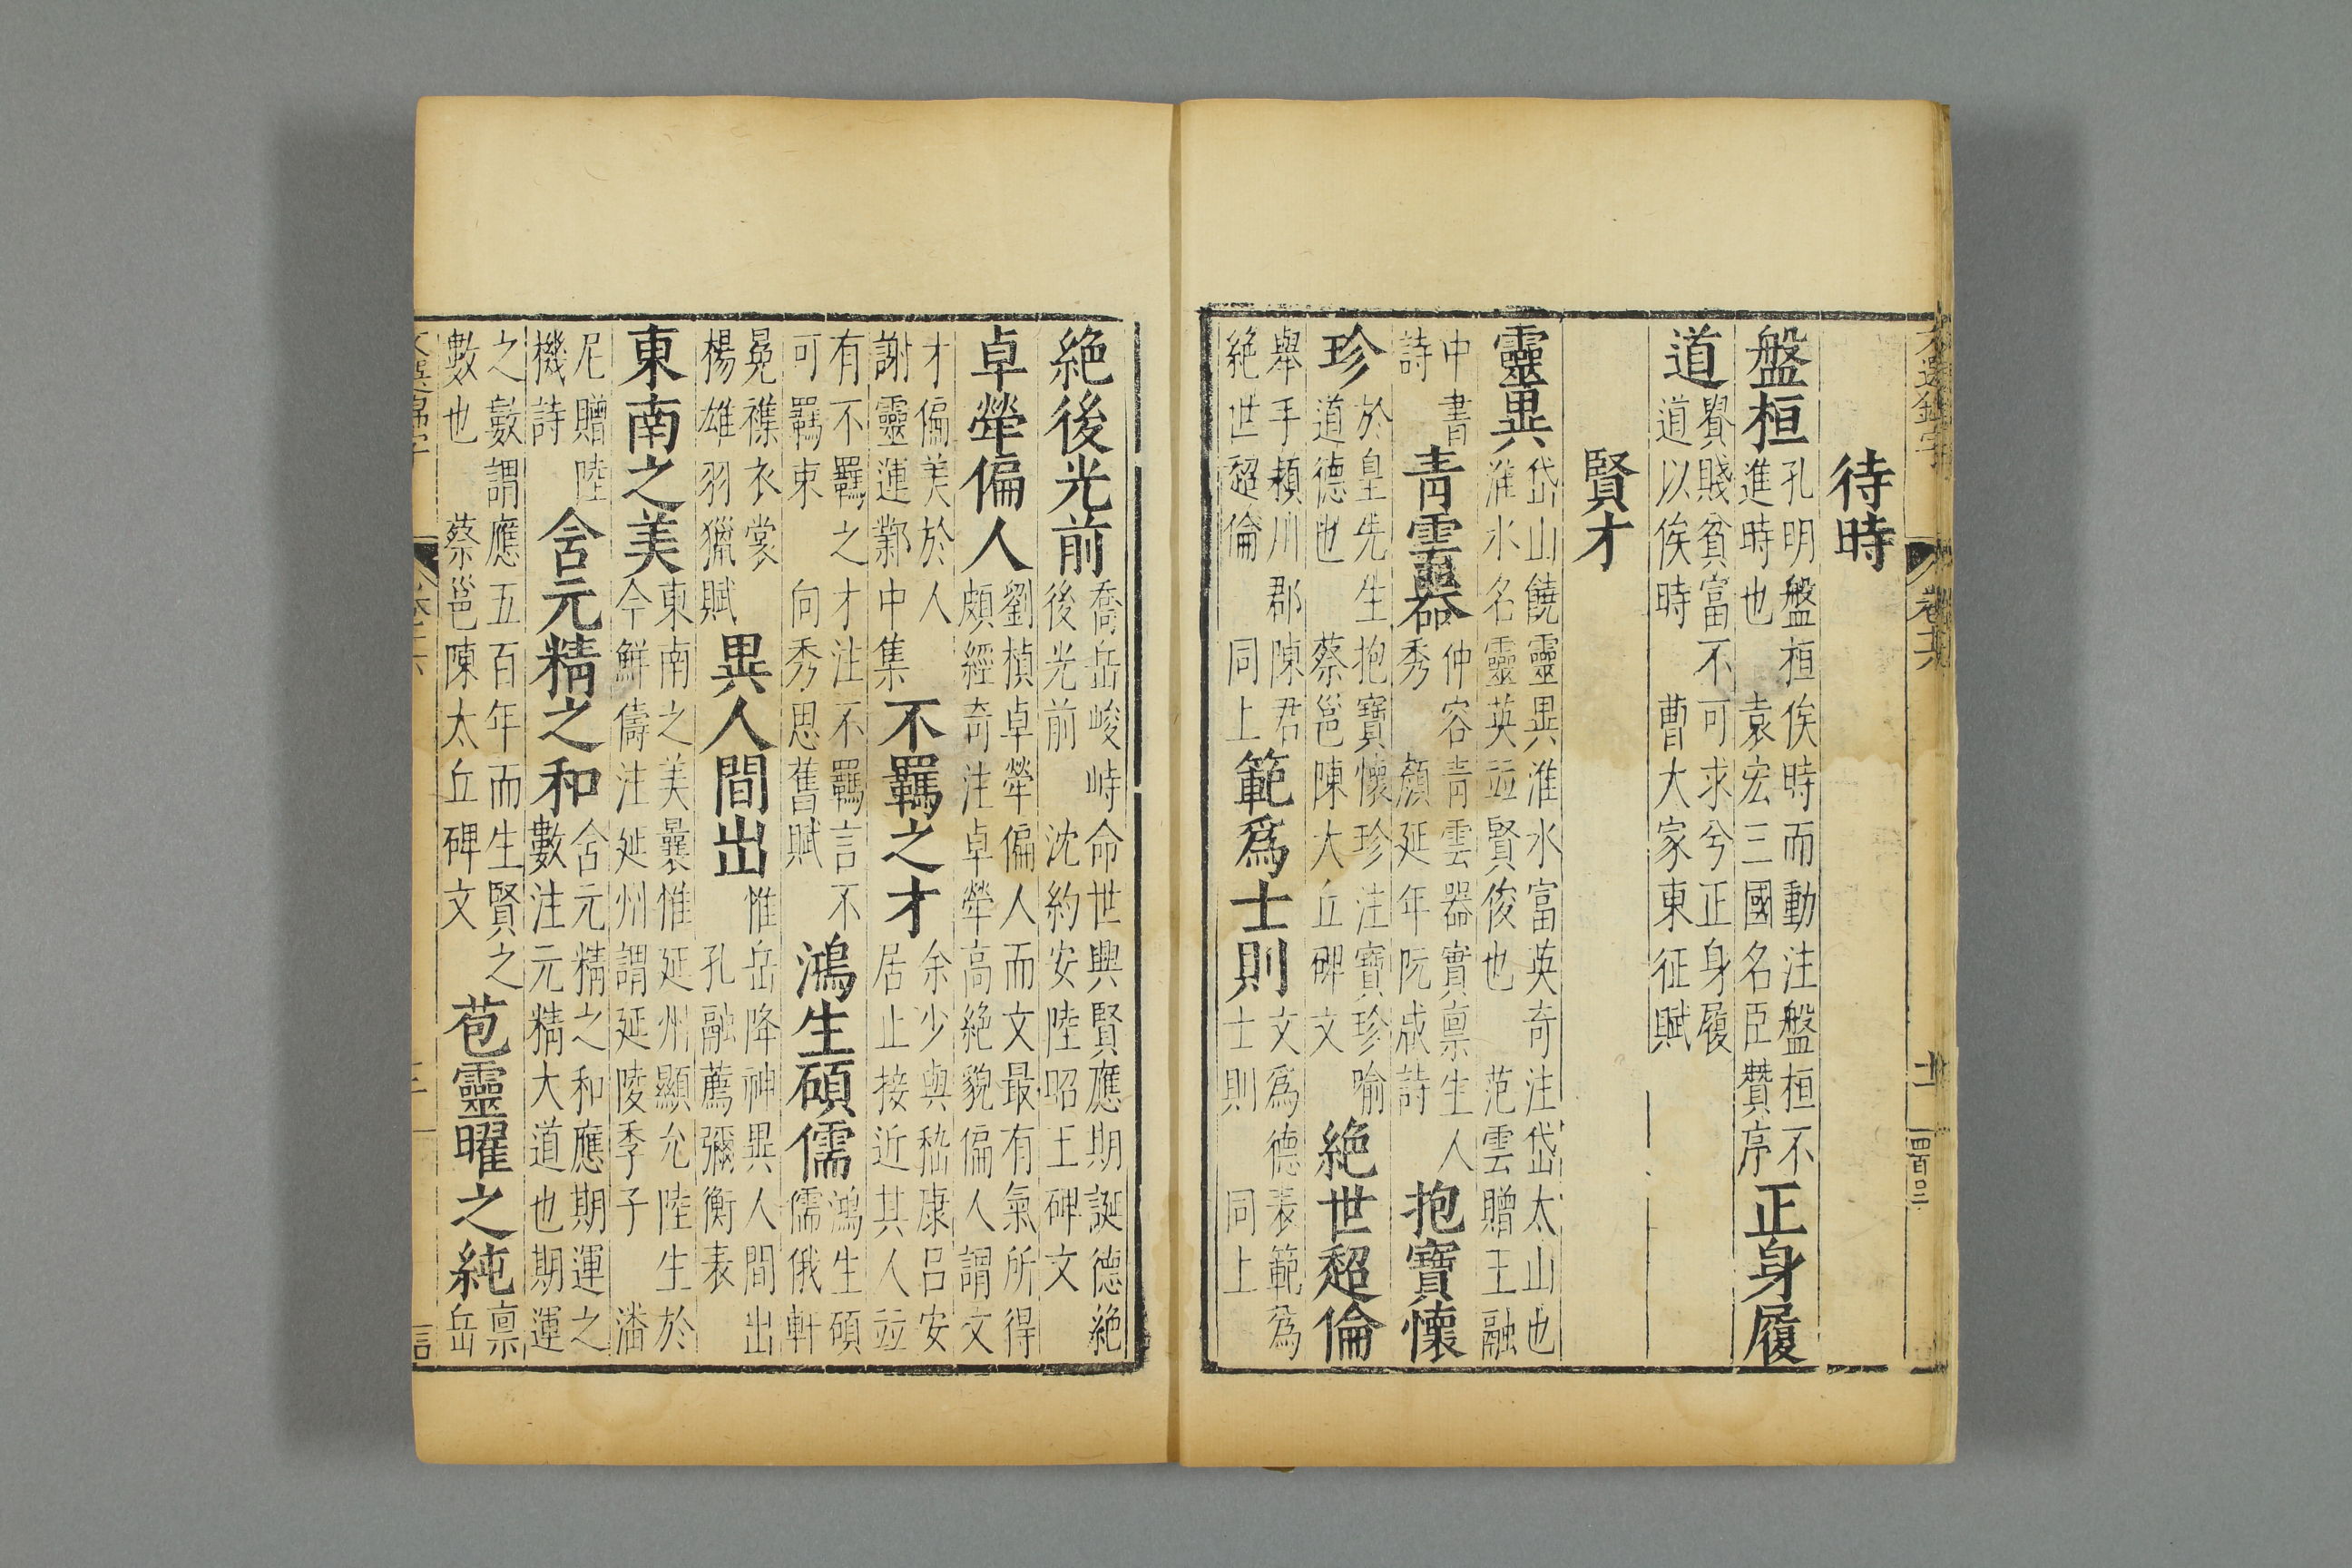 文選錦字 卷十六 十一
待時
盤桓孔明盤桓俟時而動注盤桓不進時也 袁宏三國名臣贊序正身履
道貴賤貧富不可求兮正身履道以俟時 曹大家東征賦
賢才
靈異岱山饒靈異淮水富英奇注岱太山也淮水名靈英竝賢俊也 范雲贈王融
中書詩青雲器仲容青雲器實禀生人秀 顏延年阮咸詩抱寶懷
珍於皇先生抱寶懷珍注寶珍喻道德也 蔡邕陳太丘碑文絶世超倫
舉手潁川郡陳君絶世超倫 同上範爲士則文爲德表範爲士則 同上
絶後光前喬岳峻峙命世興賢應期誕德絶後光前 沈約安陸昭王碑文
卓犖偏人劉楨卓犖偏人而文最有氣所得頗經奇注卓犖高絶貌偏人謂文
才偏美於人謝靈運鄴中集不羈之才余少與嵇康呂安居止接近其人竝
有不羈之才注不羈言不可羈束 向秀思舊賦鴻生碩儒鴻生碩儒俄軒
冕襍衣裳楊雄羽獵賦異人間出惟岳降神異人間出孔融薦彌衡表
東南之美東南之美曩惟延州顯允陸生於今鮮儔注延州謂延陵季子 潘
尼贈陸機詩含元精之和含元精之和應期運之數注元精大道也期運
之數謂應五百年而生賢之數也 蔡邕陳太丘碑文苞靈曜之純禀岳